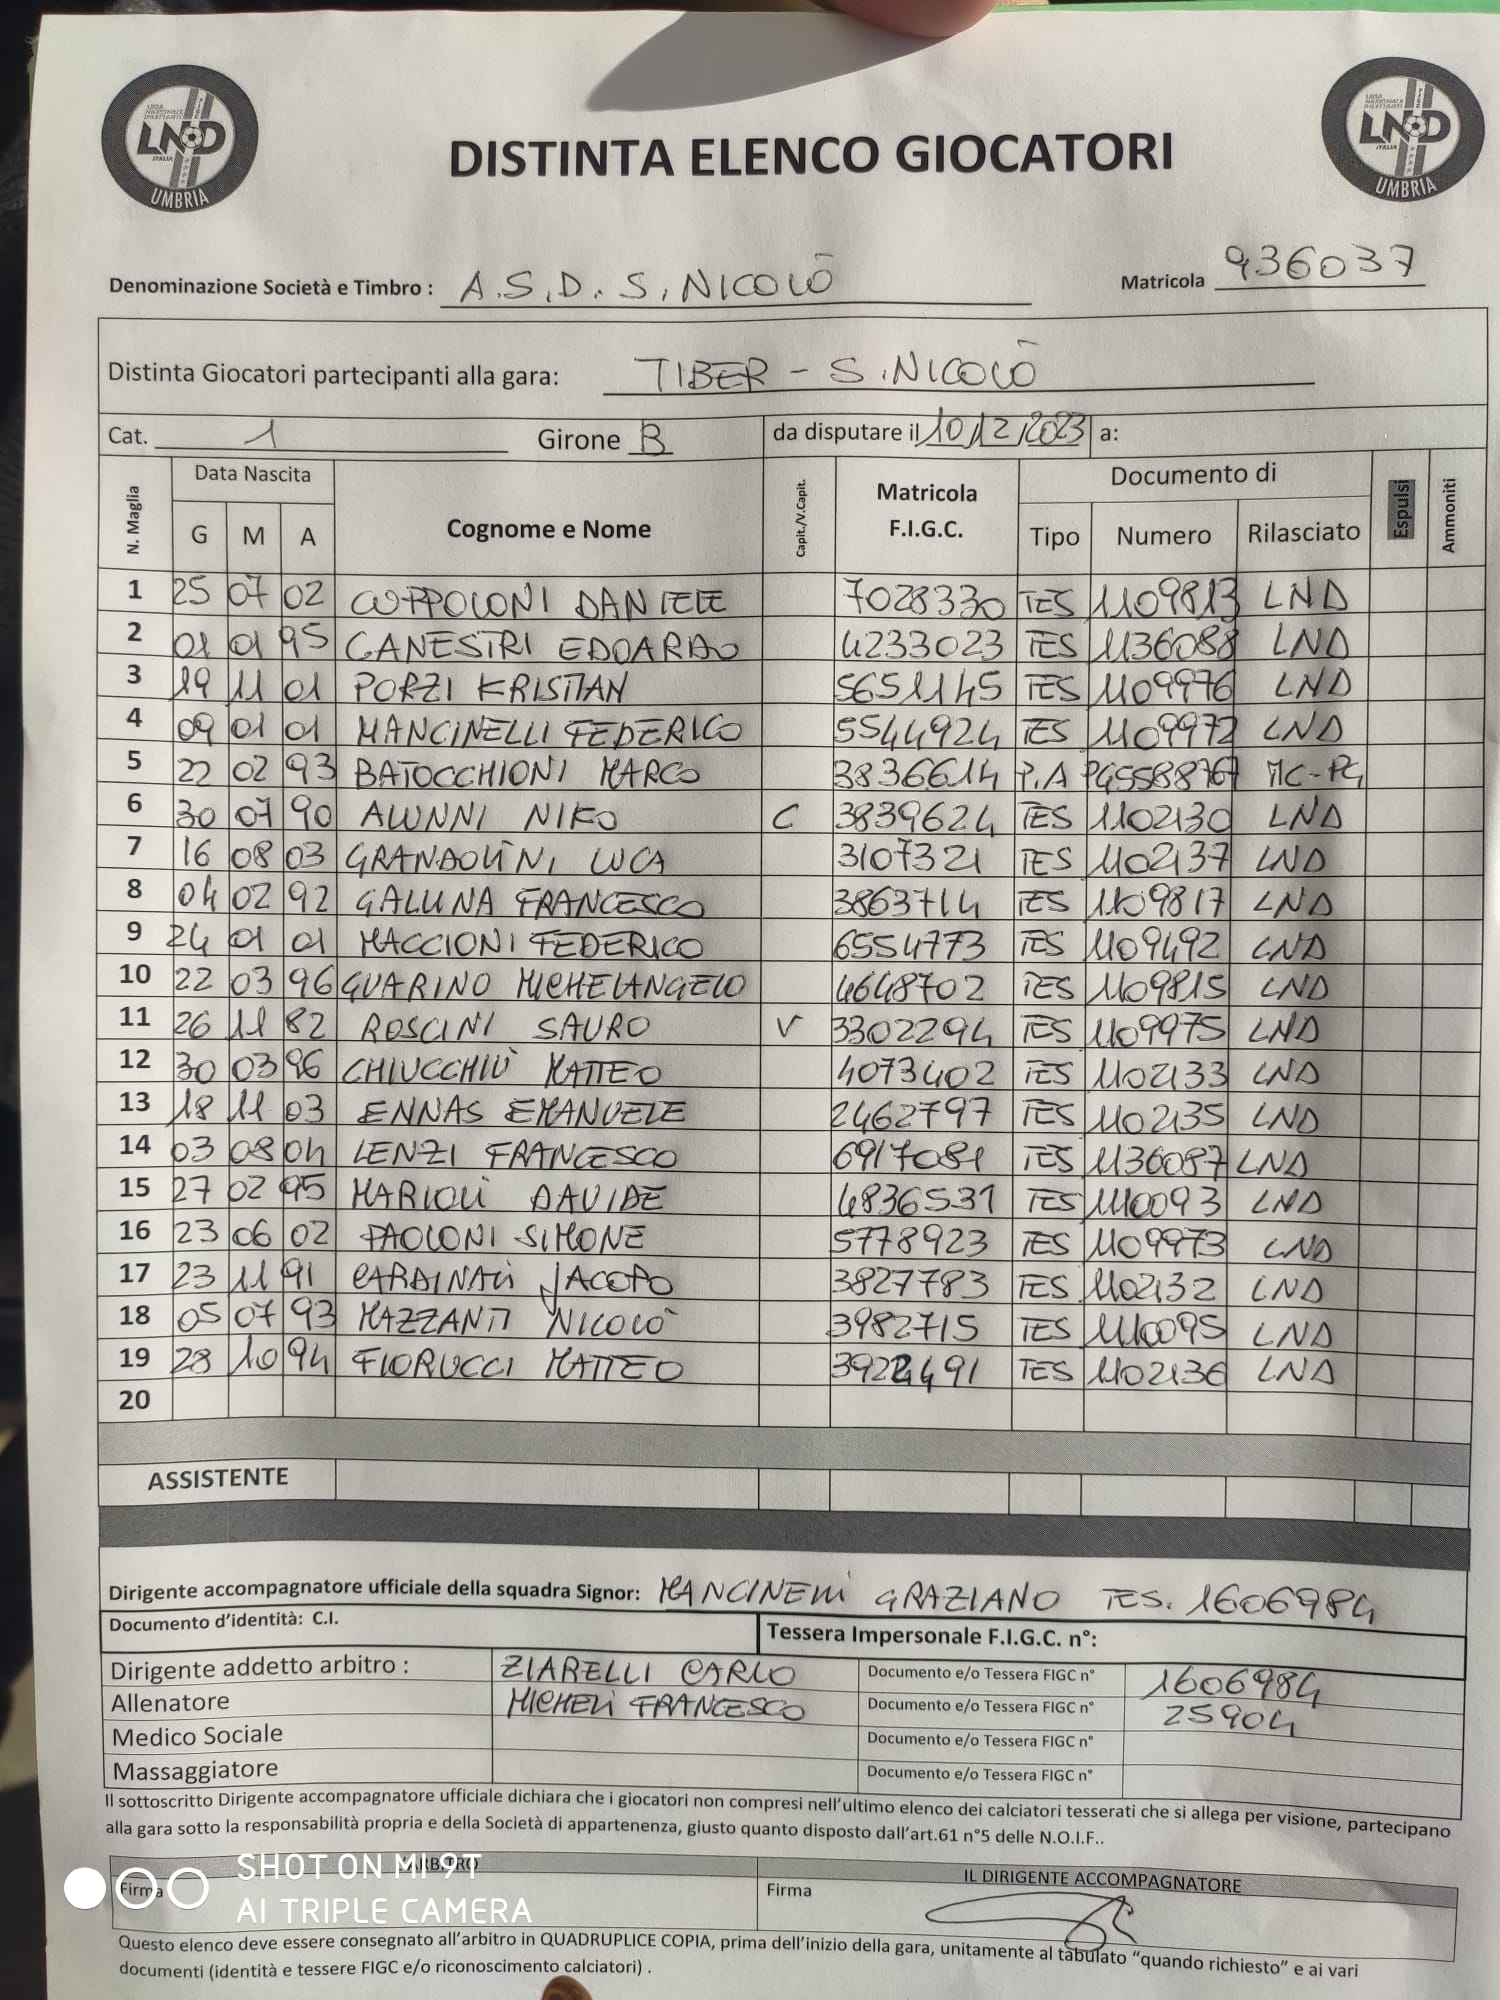 LND
ITALIA
UMBRIA
LND
ITALIA
UMBRIA
DISTINTA ELENCO GIOCATORI
Denominazione Società e Timbro : A.S.D. S. NICOLÒ Matricola 936037
Distinta Giocatori partecipanti alla gara: TIBER - S. NICOLÒ
Cat. 1 Girone B da disputare il 10/12/2023 a:
N. Maglia Data Nascita Cognome e Nome Capit./V.Capit. Matricola F.I.G.C. Documento di Espulsi Ammoniti
G M A Tipo Numero Rilasciato
1 25 07 02 COPPOLONI DANIELE 7028330 TES 1109813 LND
2 01 01 95 CANESTRI EDOARDO 4233023 TES 1136088 LND
3 19 11 01 PORZI KRISTIAN 5651145 TES 1109976 LND
4 09 01 01 MANCINELLI FEDERICO 5544924 TES 1109972 LND
5 22 02 93 BATOCCHIONI MARCO 3836614 P.A PG5588767 MC-PG
6 30 07 90 ALUNNI NIKO C 3839624 TES 1102130 LND
7 16 08 03 GRANDOLINI LUCA 3107321 TES 1102137 LND
8 04 02 92 GALUNA FRANCESCO 3863714 TES 1109817 LND
9 24 01 01 MACCIONI FEDERICO 6554773 TES 1109492 LND
10 22 03 96 GUARINO MICHELANGELO 4648702 TES 1109815 LND
11 26 11 82 ROSCINI SAURO V 3302294 TES 1109975 LND
12 30 03 96 CHIUCCHIÙ MATTEO 4073402 TES 1102133 LND
13 18 11 03 ENNAS EMANUELE 2462797 TES 1102135 LND
14 03 08 04 LENZI FRANCESCO 6917081 TES 1136087 LND
15 27 02 95 MARIOLI DAVIDE 4836531 TES 1110093 LND
16 23 06 02 PAOLONI SIMONE 5778923 TES 1109973 LND
17 23 11 91 CARDINALI JACOPO 3827783 TES 1102132 LND
18 05 07 93 MAZZANTI NICOLÒ 3982715 TES 1110095 LND
19 28 10 94 FIORUCCI MATTEO 3922491 TES 1102136 LND
20
ASSISTENTE
Dirigente accompagnatore ufficiale della squadra Signor: MANCINELLI GRAZIANO TES. 1606984
Documento d'identità: C.I. Tessera Impersonale F.I.G.C. n°:
Dirigente addetto arbitro : ZIARELLI CARLO Documento e/o Tessera FIGC n° 1606984
Allenatore MICHELI FRANCESCO Documento e/o Tessera FIGC n° 25904
Medico Sociale Documento e/o Tessera FIGC n°
Massaggiatore Documento e/o Tessera FIGC n°
Il sottoscritto Dirigente accompagnatore ufficiale dichiara che i giocatori non compresi nell'ultimo elenco dei calciatori tesserati che si allega per visione, partecipano
alla gara sotto la responsabilità propria e della Società di appartenenza, giusto quanto disposto dall'art.61 n°5 delle N.O.I.F..
ARBITRO IL DIRIGENTE ACCOMPAGNATORE
Firma Firma
SHOT ON MI 9T
AI TRIPLE CAMERA
Questo elenco deve essere consegnato all'arbitro in QUADRUPLICE COPIA, prima dell'inizio della gara, unitamente al tabulato "quando richiesto" e ai vari
documenti (identità e tessere FIGC e/o riconoscimento calciatori) .